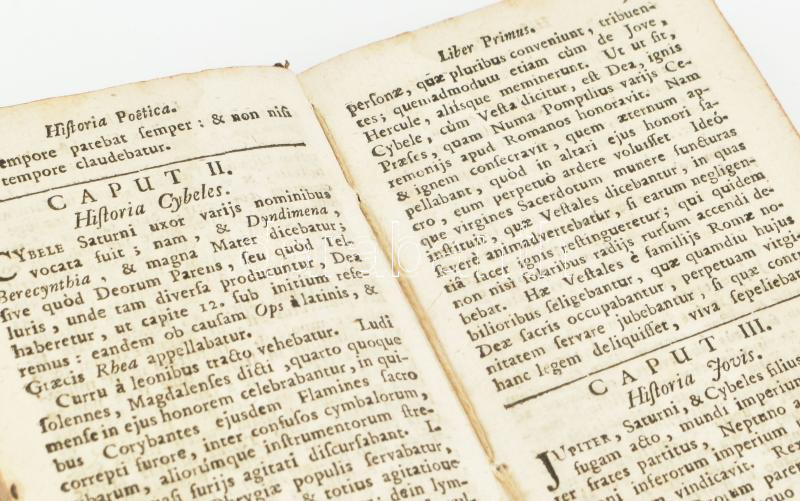 Hiſtoria Poëtica.
tempore patebat ſemper: & non niſi
tempore claudebatur.
CAPUT II.
Hiſtoria Cybeles.
CYBELE Saturni uxor varijs nominibus
vocata fuit; nam, & Dyndimena,
Berecynthia, & magna Mater dicebatur;
ſive quòd Deorum Parens, ſeu quòd Tel-
luris, unde tam diverſa producuntur, Dea
haberetur, ut capite 12. ſub initium refe-
remus: eandem ob cauſam Ops à latinis, &
Græcis Rhea appellabatur.
Curru à leonibus tracto vehebatur. Ludi
ſolennes, Magdalenſes dicti, quarto quoque
menſe in ejus honorem celebrabantur, in qui-
bus Corybantes ejuſdem Flamines ſacro
correpti furore, inter confuſos cymbalorum,
tibarum, aliorumque inſtrumentorum ſtre-
furijs agitati diſcurſabant.
Phrygiæ populis ſervabatur,
& totius agitatioue
dein lym-
Liber Primus.
perſonæ, quæ pluribus conveniunt, tribuen-
tes; quemadmodum etiam cùm de Jove,
Hercule, aliisque meminerunt. Ut ut ſit,
Cybele, cùm Veſta dicitur, eſt Dea, ignis
Præſes, quam Numa Pompilius varijs Ce-
remonijs apud Romanos honoravit. Nam
& ignem conſecravit, quem æternum ap-
pellabant, quòd in altari ejus honori ſa-
cro, eum perpetuò ardere voluiſſet. Ideó-
que virgines Sacerdotum munere functuras
inſtituit, quæ Veſtales dicebantur, in quas
ſeverè animadvertebatur, ſi earum negligen-
tiâ ſacer ignis reſtingueretur; qui quidem
non niſi ſolaribus radijs rurſum accendi de-
bebat. Hæ Veſtales è familijs Romæ no-
bilioribus ſeligebantur, quæ quamdiu hujus
Deæ ſacris occupabantur, perpetuam virgi-
nitatem ſervare jubebantur, ſi quæ contra
hanc legem deliquiſſet, viva ſepeliebatur
CAPUT III.
Hiſtoria Jovis.
JUPITER, Saturni, & Cybeles filius
fugam acto, mundi imperium
fratres partitus, Neptuno
inferorum imperium
vindicavit.